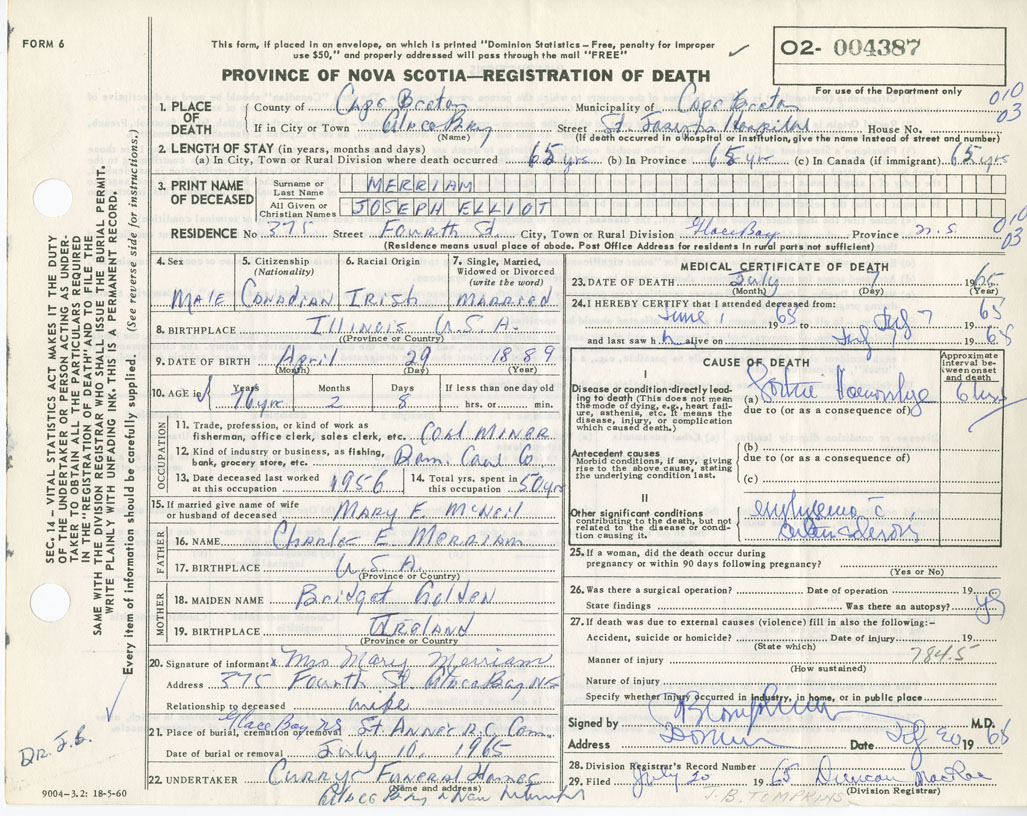 FORM 6
This form, if placed in an envelope, on which is printed "Dominion Statistics—Free, penalty for improper
use $50," and properly addressed will pass through the mail "FREE"
O2- 004387
PROVINCE OF NOVA SCOTIA—REGISTRATION OF DEATH
For use of the Department only
010
03
1. PLACE OF DEATH
County of Cape Breton Municipality of Cape Breton
If in City or Town Glace Bay Street St. Josephs Hospital House No.
(Name) (If death occurred in a hospital or institution, give the name instead of street and number)
2. LENGTH OF STAY (in years, months and days)
(a) In City, Town or Rural Division where death occurred 65 yrs (b) In Province 65 yrs (c) In Canada (if immigrant) 65 yrs
3. PRINT NAME OF DECEASED
Surname or Last Name MERRIAM
All Given or Christian Names JOSEPH ELLIOT
RESIDENCE No 375 Street Fourth St. City, Town or Rural Division Glace Bay Province N.S
010
03
(Residence means usual place of abode. Post Office Address for residents in rural parts not sufficient)
4. Sex
Male
5. Citizenship (Nationality)
Canadian
6. Racial Origin
Irish
7. Single, Married, Widowed or Divorced (write the word)
Married
8. BIRTHPLACE Illinois U.S.A.
(Province or Country)
9. DATE OF BIRTH April 29 1889
(Month) (Day) (Year)
10. AGE in Years Months Days If less than one day old
76 yrs 2 8 hrs. or min.
OCCUPATION
11. Trade, profession, or kind of work as
fisherman, office clerk, sales clerk, etc. Coal Miner
12. Kind of industry or business, as fishing,
bank, grocery store, etc. Dom. Coal Co
13. Date deceased last worked at this occupation 1956
14. Total yrs. spent in this occupation 50 yrs
15. If married give name of wife
or husband of deceased Mary E. McNeil
FATHER
16. NAME Charles E Merriam
17. BIRTHPLACE U.S.A.
(Province or Country)
MOTHER
18. MAIDEN NAME Bridget Golden
19. BIRTHPLACE Ireland
(Province or Country)
20. Signature of informant x Mrs Mary Merriam
Address 375 Fourth St. Glace Bay NS
Relationship to deceased wife
21. Place of burial, cremation or removal Glace Bay NS St Anne's R.C. Cem.
Date of burial or removal July 10, 1965
22. UNDERTAKER Curry Funeral Homes
(Name and address)
Glace Bay & New Waterford
MEDICAL CERTIFICATE OF DEATH
23. DATE OF DEATH July 7 1965
(Month) (Day) (Year)
24. I HEREBY CERTIFY that I attended deceased from:
June 1 1965 to July 7 1965
and last saw h alive on July 7 1965
CAUSE OF DEATH
Approximate interval between onset and death
I
Disease or condition directly leading to death (This does not mean the mode of dying, e.g., heart failure, asthenia, etc. It means the disease, injury, or complication which caused death.)
(a) Hemorrhage 6 hrs
due to (or as a consequence of)
Antecedent causes
Morbid conditions, if any, giving rise to the above cause, stating the underlying condition last.
(b)
due to (or as a consequence of)
(c)
II
Other significant conditions
contributing to the death, but not related to the disease or condition causing it.
emphysema c̄
25. If a woman, did the death occur during
pregnancy or within 90 days following pregnancy?
(Yes or No)
26. Was there a surgical operation? Date of operation 19
State findings Was there an autopsy? yes
27. If death was due to external causes (violence) fill in also the following:—
Accident, suicide or homicide? Date of injury 19
(State which)
784.5
Manner of injury
(How sustained)
Nature of injury
Specify whether injury occurred in industry, in home, or in public place
Signed by M.D.
Address Date July 20 1965
28. Division Registrar's Record Number
29. Filed July 20 1965 Duncan MacRae
(Division Registrar)
J.B. TOMPKINS
SEC. 14 - VITAL STATISTICS ACT MAKES IT THE DUTY
OF THE UNDERTAKER OR PERSON ACTING AS UNDER-
TAKER TO OBTAIN ALL THE PARTICULARS REQUIRED
IN THE "REGISTRATION OF DEATH" AND TO FILE THE
SAME WITH THE DIVISION REGISTRAR WHO SHALL ISSUE THE BURIAL PERMIT.
WRITE PLAINLY WITH UNFADING INK. THIS IS A PERMANENT RECORD.
Every item of information should be carefully supplied. (See reverse side for instructions.)
DR. J.B.
9004-3.2: 18-5-60